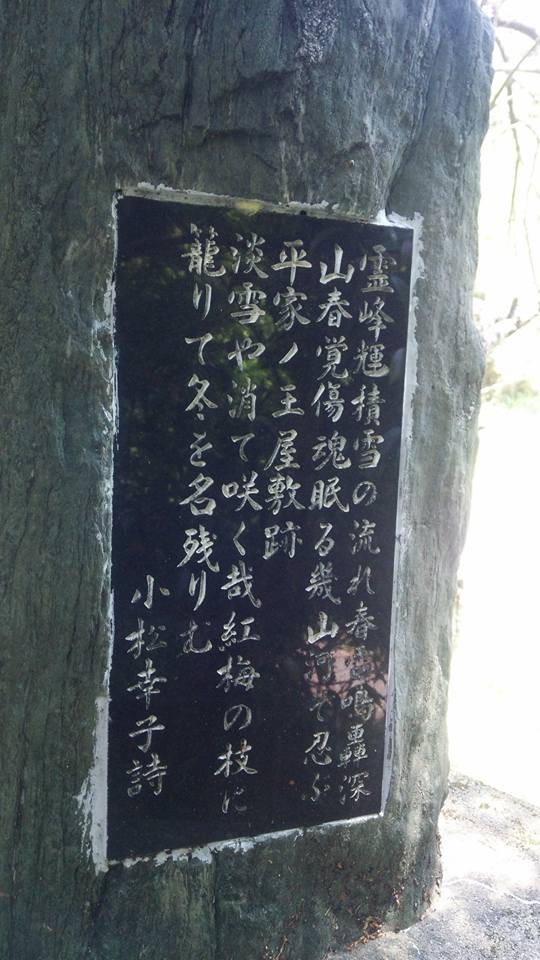 霊峰輝積雪の流れ春 鳴轟深
山春覚傷魂眠る幾山河で忍ぶ
平家ノ王屋敷跡
淡雪や消て咲く哉紅梅の枝に
籠りて冬を名残りむ
小松幸子詩